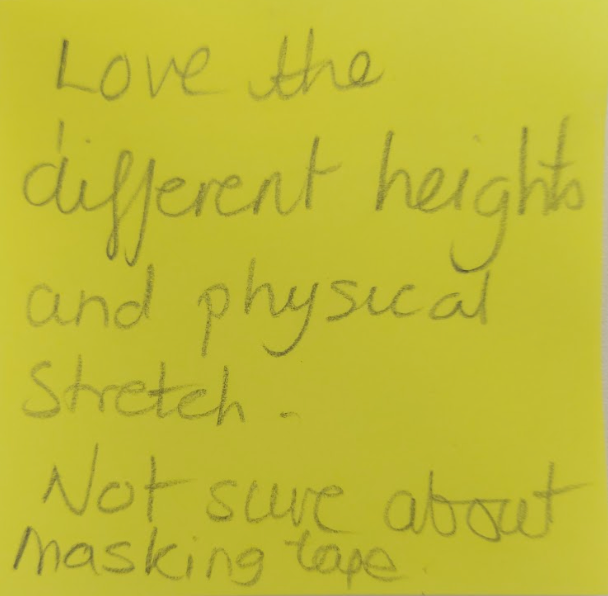 Love the
different heights
and physical
Stretch -
Not sure about
masking tape.